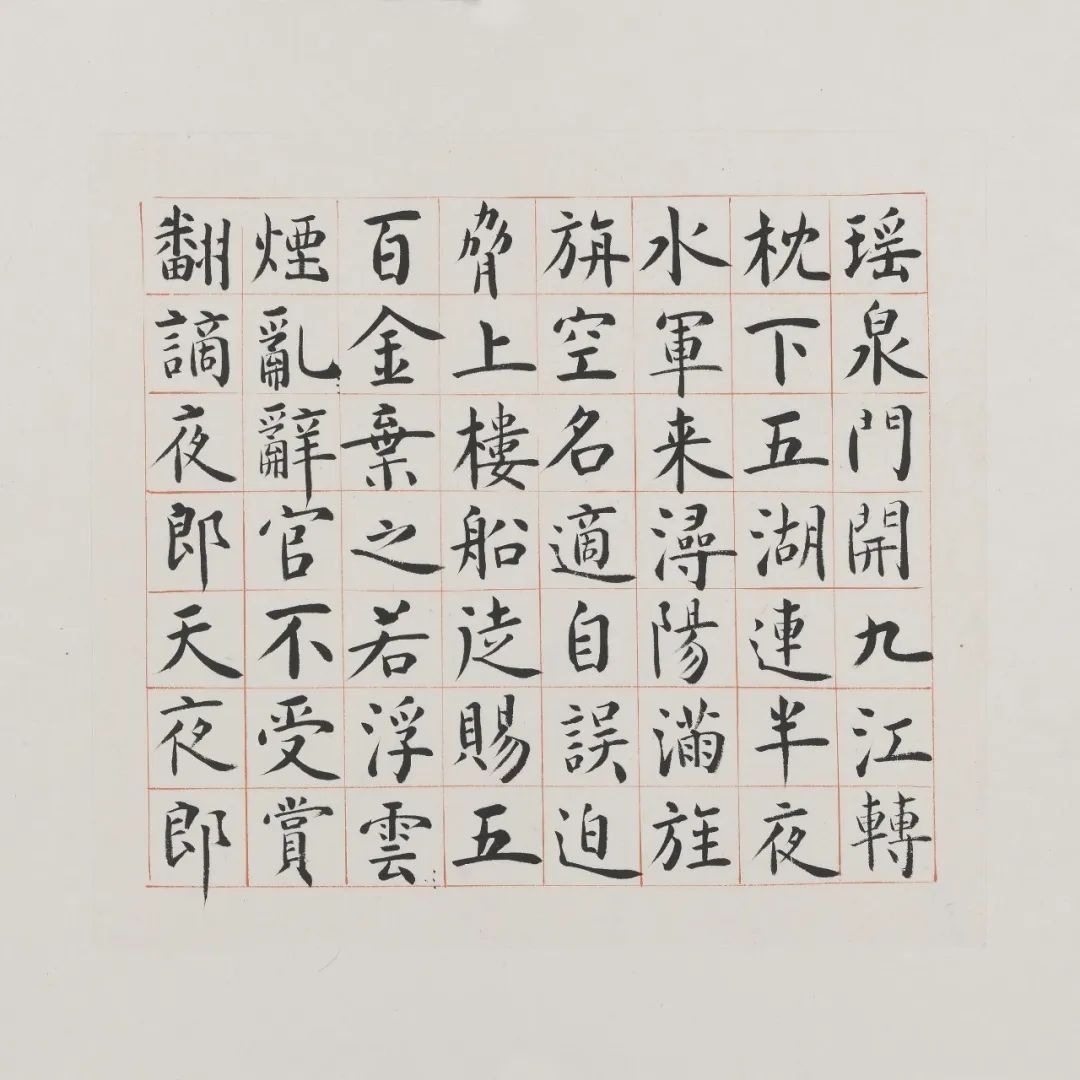 瑶泉門開九江轉
枕下五湖連半夜
水軍来潯陽滿旌
旃空名適自誤迫
脅上樓船徒賜五
百金棄之若浮雲
煙亂辭官不受賞
翻謫夜郎天夜郎